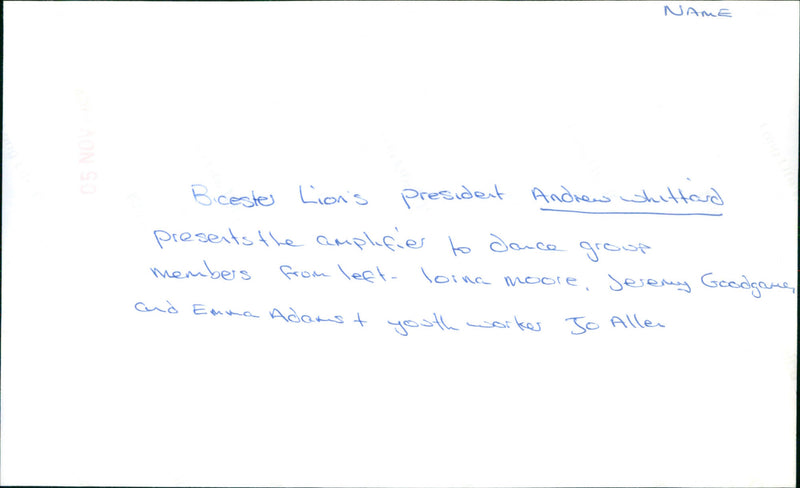 NAME
05 NOV
Bicester Lion's president Andrew Whittard
presents the amplifier to dance group
members from left- lorna moore, Jeremy Goodgame,
and Emma Adams + youth worker Jo Allen